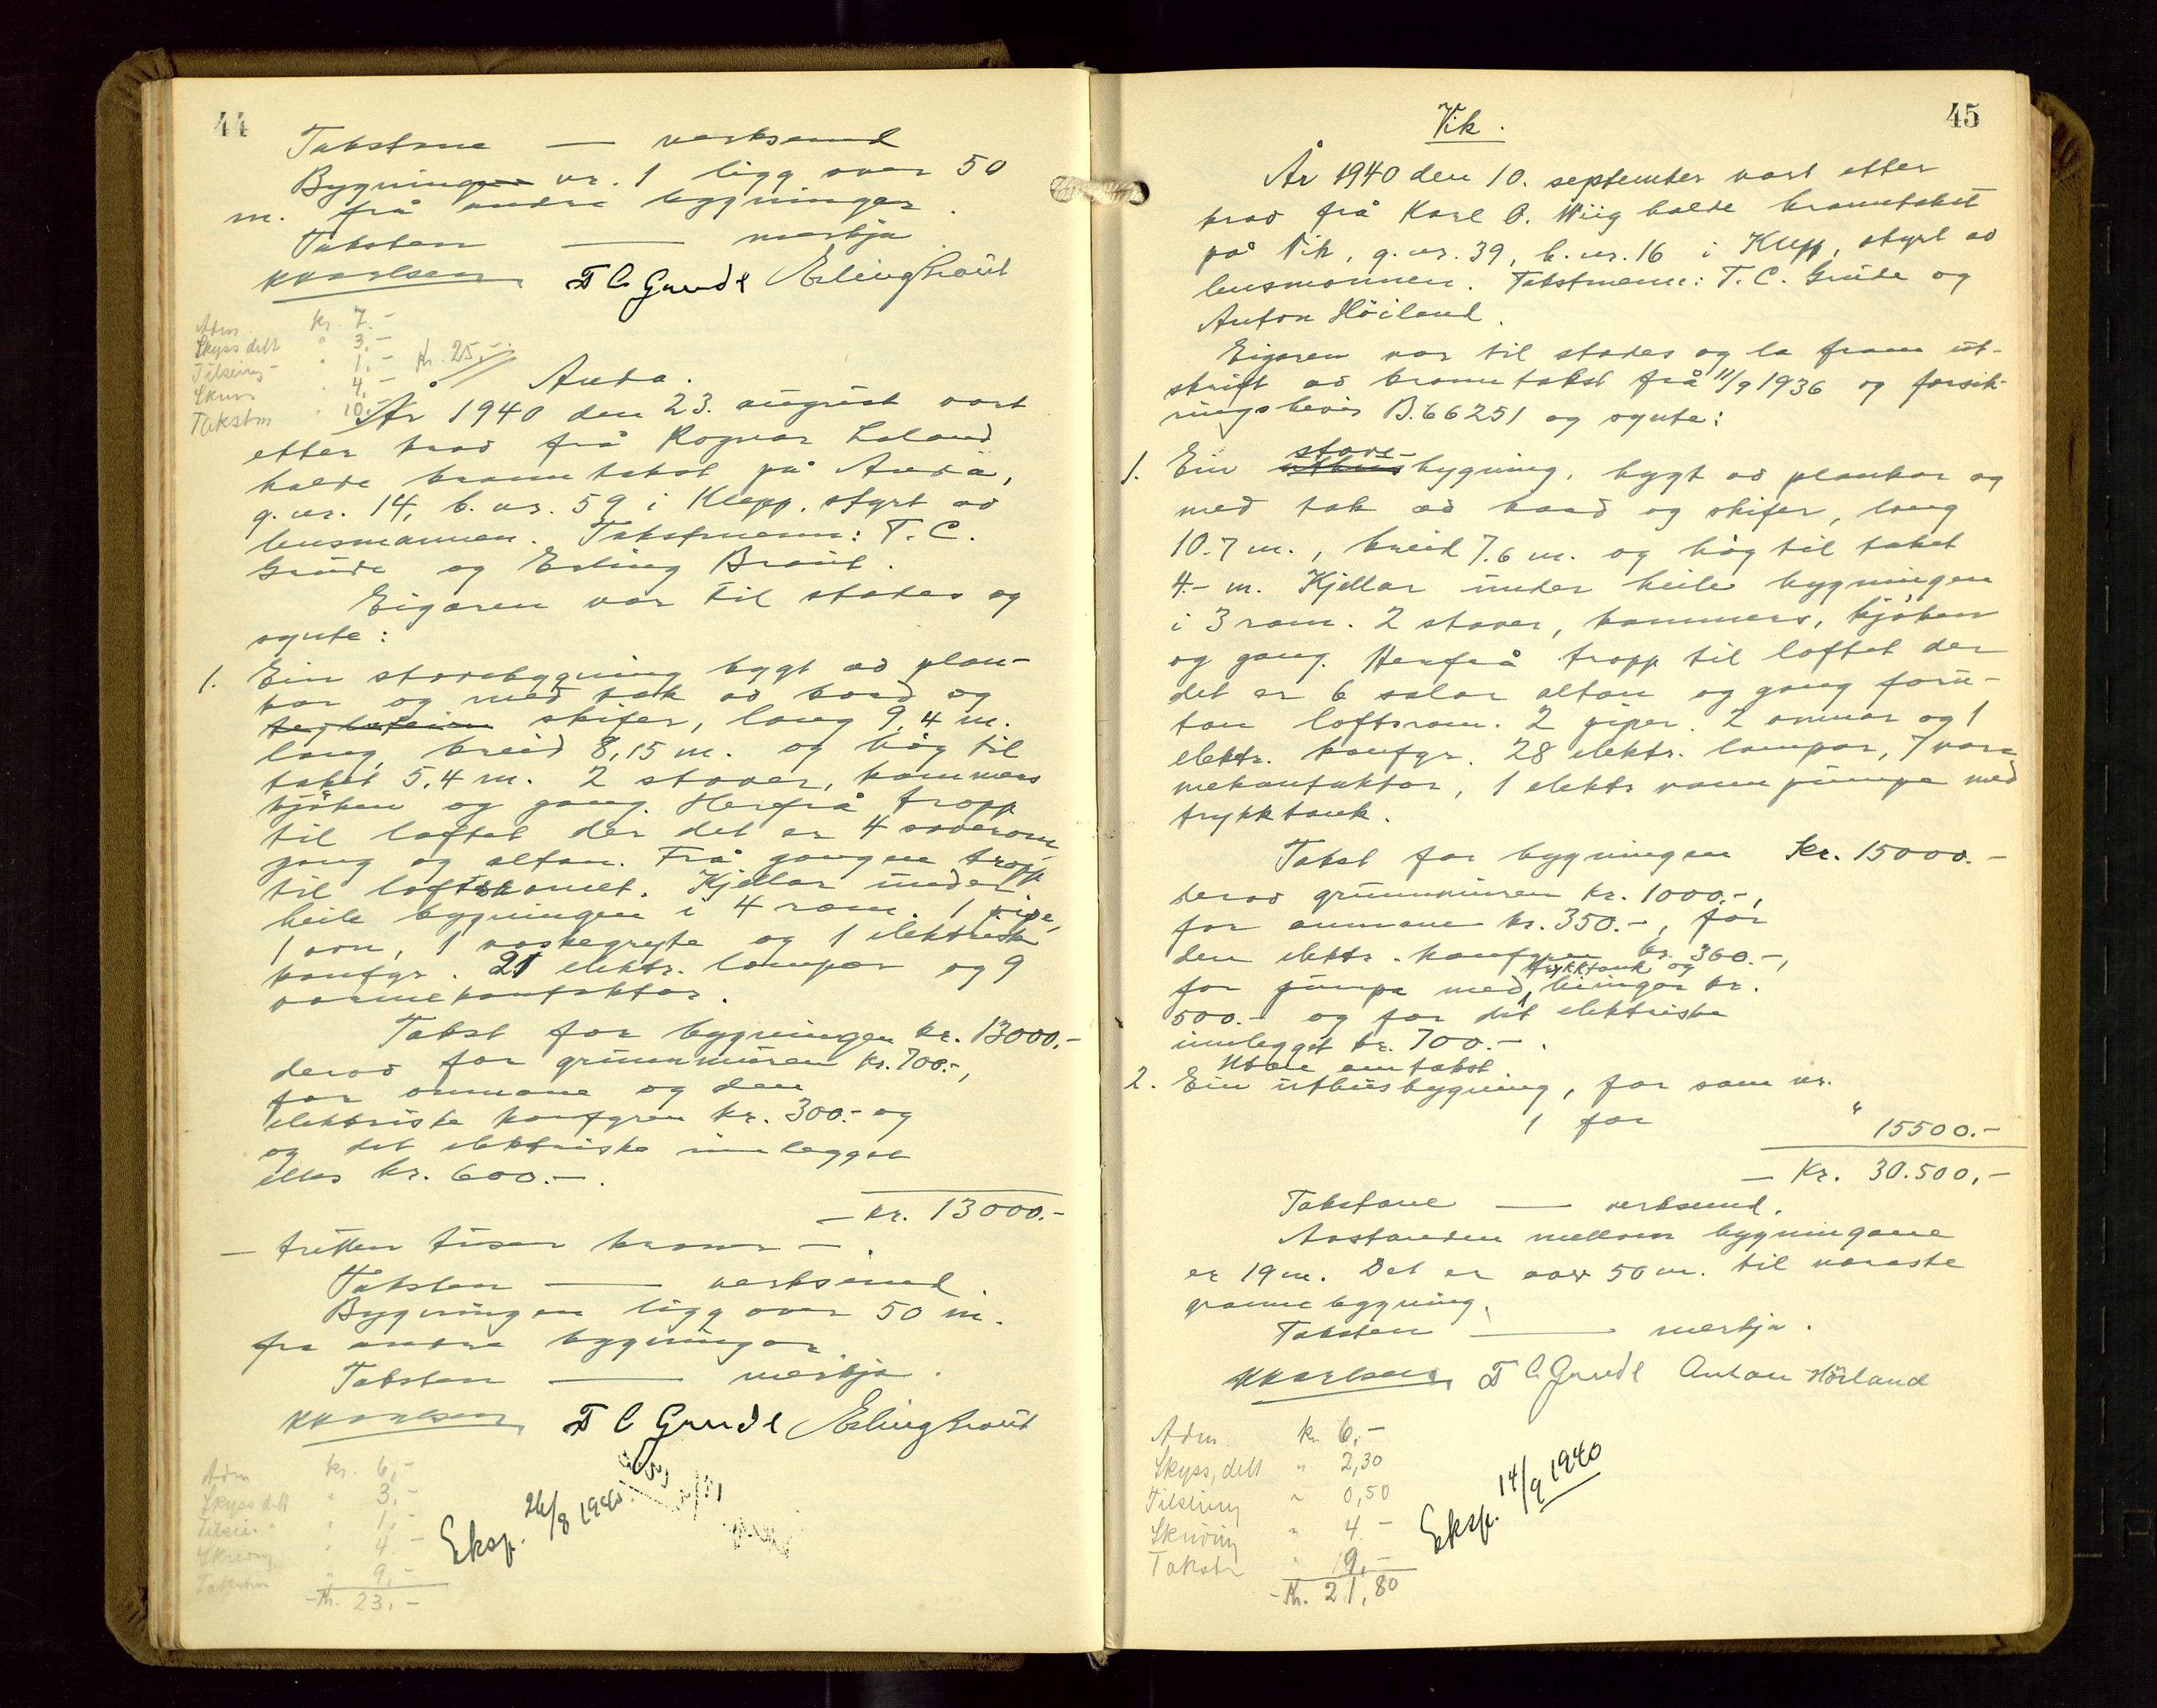 44
Takstane — verksemd
Bygningen nr. 1 ligg over 50
m. frå andre bygningar.
Taksten — merkja.
KKarlsen T C Grude Erling Braut
Adm kr. 7.-
Skyss delt " 3,-
Tilseiing - " 1,- Kr. 25,-
Skriv " 4,-
Takstm " 10.-
Anda.
År 1940 den 23. august vart
etter krav frå Rognar Laland
halde branntakst på Anda,
g.nr. 14, b.nr. 59 i Klepp, styrt av
lensmannen. Takstmenn: T. C.
Grude og Erling Braut.
Eigaren var til stades og
synte:
1. Ein stovebygning bygt av plan-
kar og med tak av bord og
teglstein skifer, lang 9,4 m.
lang, breid 8,15 m. og høg til
taket 5,4 m. 2 stover, kammers
kjøken og gang. Herfrå tropp
til loftet der det er 4 soverom
gang og altan. Frå gangen tropp
til loftsromet. Kjellar under
heile bygningen i 4 rom. 1 pipe,
1 omn, 1 vaskegryte og 1 elektrisk
komfyr. 21 elektr. lampor og 9
varmekontaktar.
Takst for bygningen kr. 13000.-
derav for grunnmuren kr. 700.-,
for omnane og den
elektriske komfyren kr. 300.- og
og det elektriske innlegget
elles kr. 600.-.
- kr. 13000.-
- tretten tusen kroner -.
Taksten — verksemd
Bygningen ligg over 50 m.
fra andre bygningar
Taksten — merkja.
KKarlsen T C Grude Erling Braut
Adm kr. 6,-
Skyss delt " 3,-
Tilsei.- " 1,-
Skriving " 4.-
Takstm " 9,-
-Kr. 23.-
Eksp. 26/8 1940.
45
Vik.
År 1940 den 10. september vart etter
krav frå Karl O. Wiig halde branntakst
på Vik, g.nr. 39, b.nr. 16 i Klepp, styrt av
lensmannen. Takstmenn: T. C. Grude og
Anton Höiland.
Eigaren var til stades og la fram ut-
skrift av branntakst frå 11/9 1936 og forsik-
ringsbevis B.66251 og synte:
stove-
1. Ein uthusbygning, bygt av plankar og
med tak av bord og skifer, lang
10.7 m., breid 7.6 m. og høg til taket
4.- m. Kjellar under heile bygningen
i 3 rom. 2 stover, kammers, kjøken
og gang. Herfrå tropp til loftet der
det er 6 salar altan og gang foru-
tan loftsrom. 2 piper 2 omnar og 1
elektr. komfyr. 28 elektr. lampor, 7 var-
mekontaktor, 1 elektr vannpumpe med
trykktank.
Takst for bygningen kr. 15000.-
derav grunnmuren kr. 1000.-,
for omnane kr. 350.-, for
den elektr. komfyren kr. 360.-,
trykktank og
for pumpe med leingar kr.
500.- og for det elektriske
innlegget kr. 700.-.
Utan omtakst
2. Ein uthusbygning, før som nr.
1 for " 15500.-
- Kr. 30.500,-
Takstane — verksemd.
Avstanden mellom bygningane
er 19 m. Det er over 50 m. til næraste
grannebygning.
Taksten — merkja.
KKarlsen T C Grude Anton Höiland
Adm kr 6,-
Skyss, delt " 2,30
Tilseiing " 0,50
Skriving " 4.-
Takstm " 9,-
-Kr. 21,80
Eksp. 14/9 1940